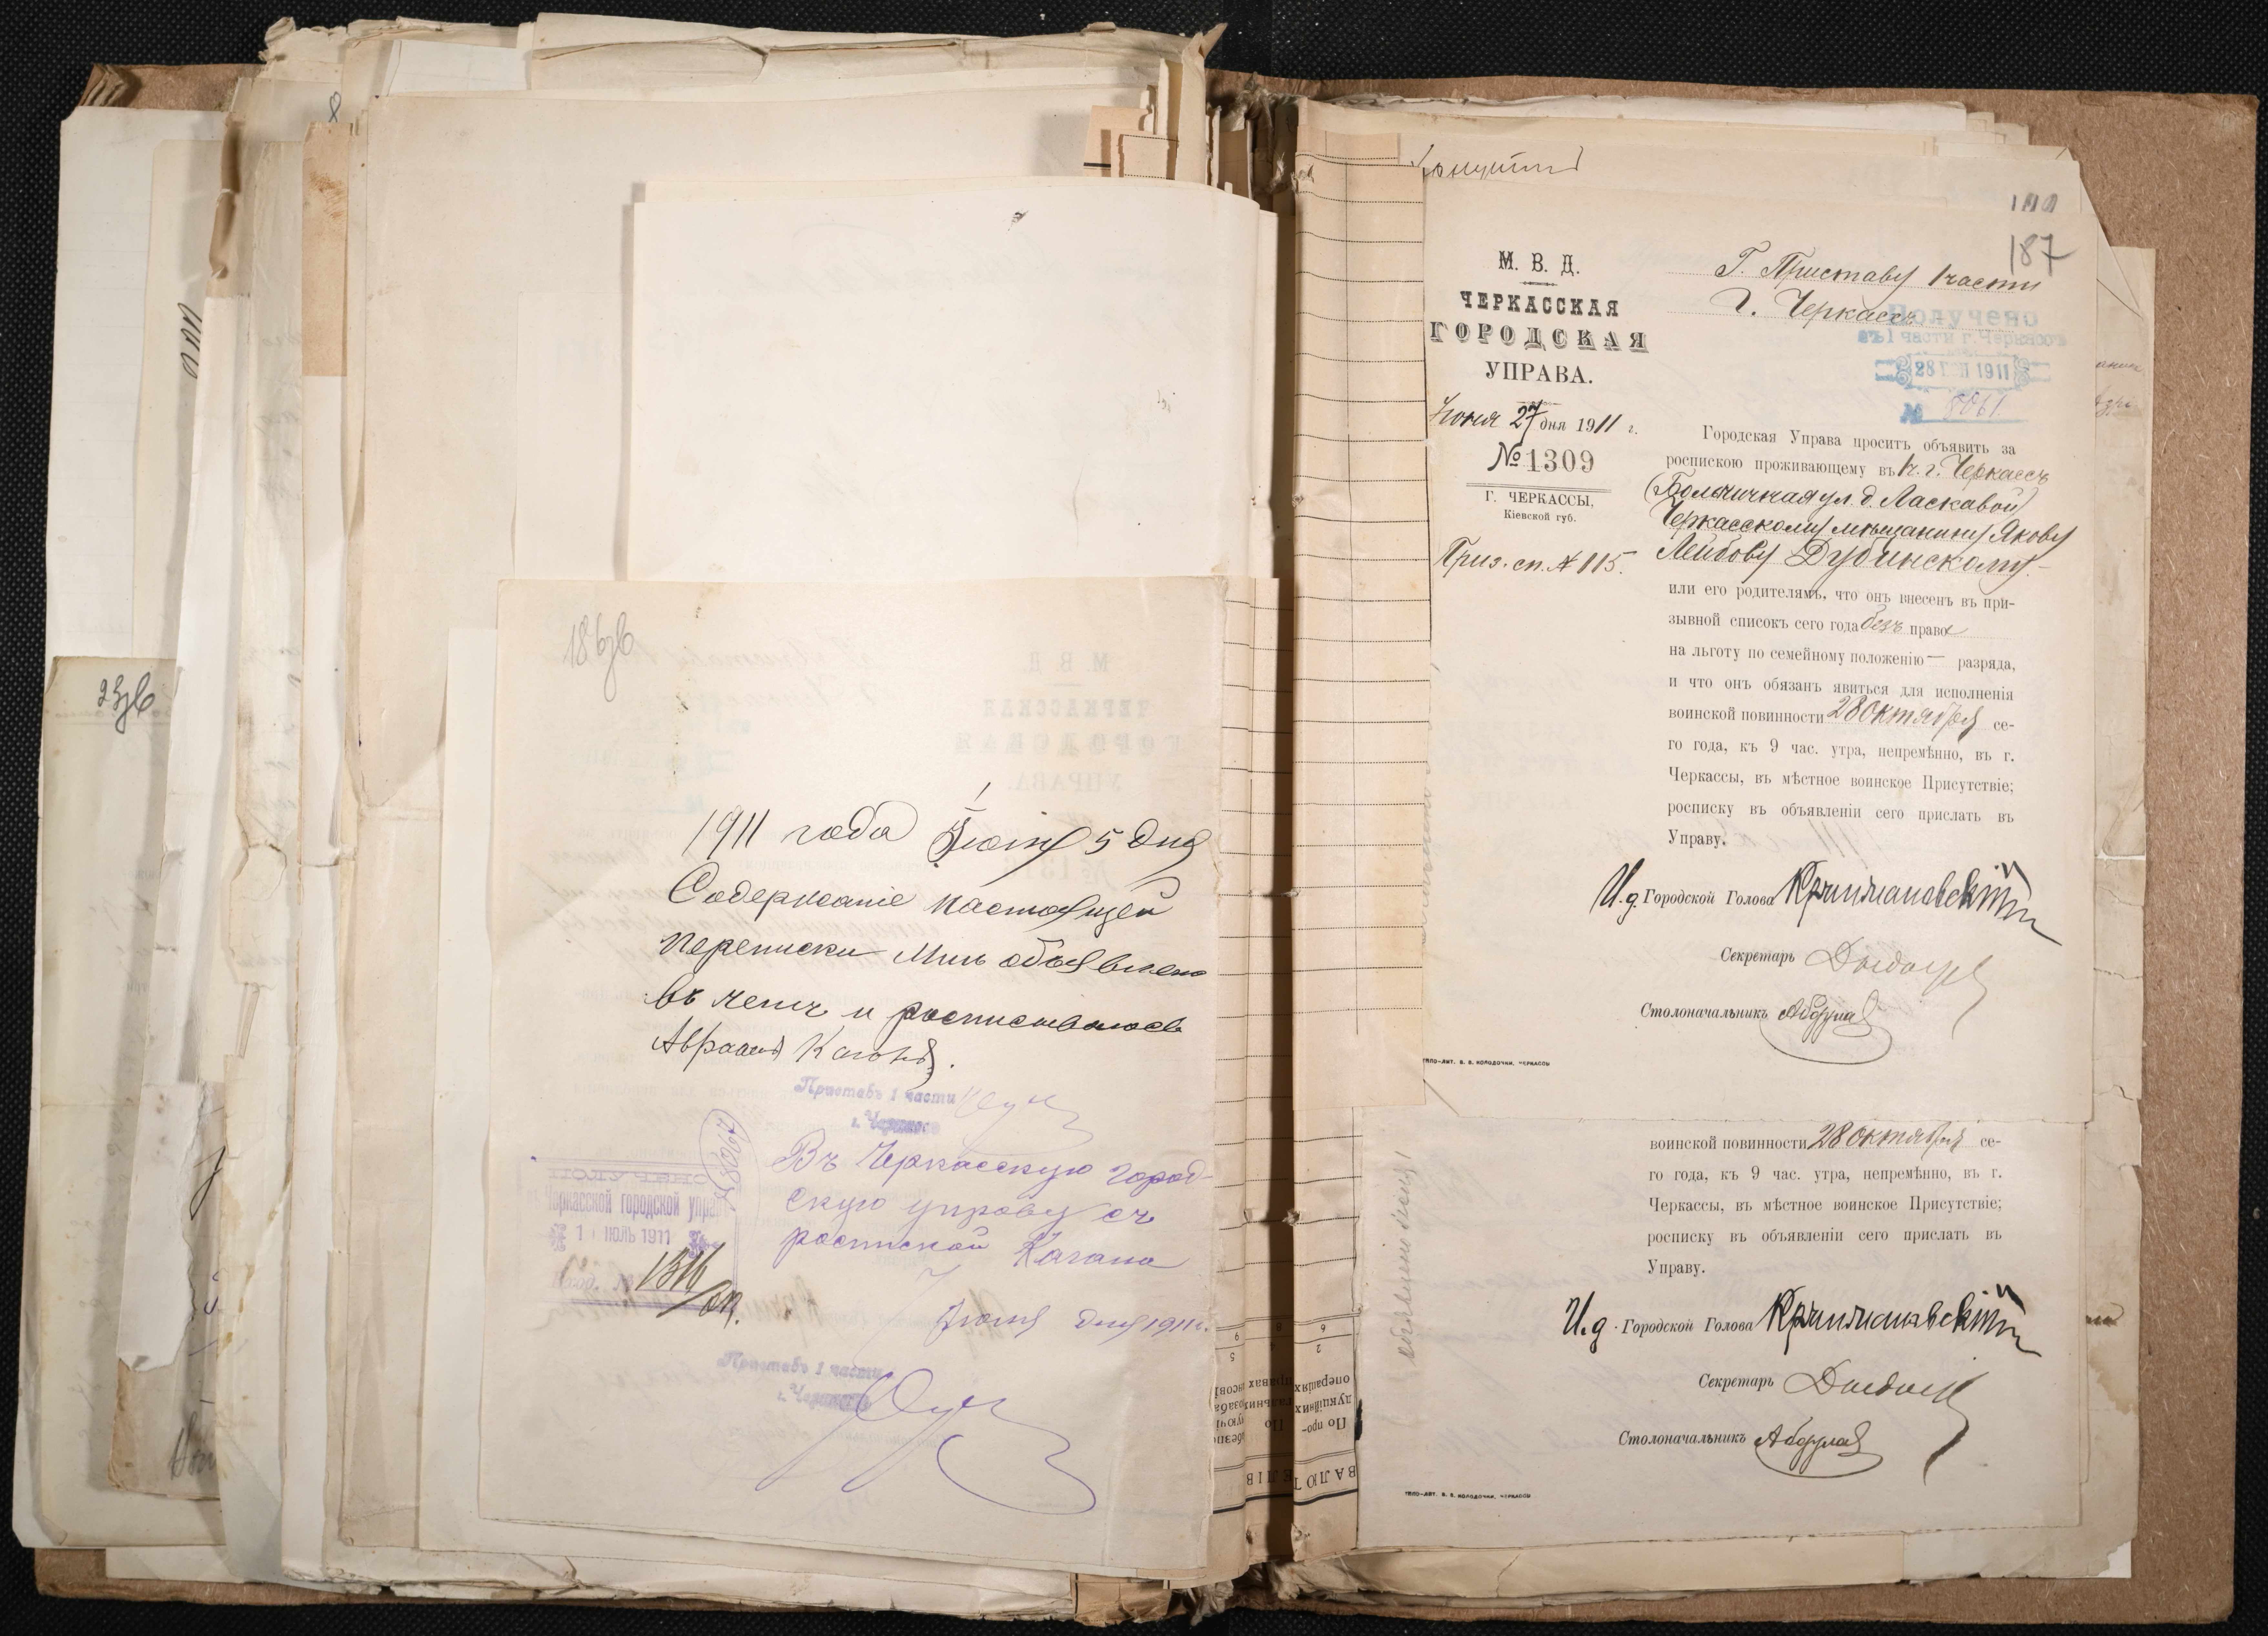 8
23об
186об
1911 года Іюля 5 дня
Содержаніе настоящей
переписки мнѣ объявлено
въ чемъ и росписываюсь
Авраамъ Каганъ.
Приставъ 1 части
г. Черкассъ
Въ Черкасскую город-
скую управу съ
роспиской Кагана
7 Іюля дня 1911 г.
ПОЛУЧЕНО
Черкасской городской управ
1 ІЮЛЬ 1911
№ 1316
Приставъ 1 части
г. Черкассъ
187
М. В. Д.
ЧЕРКАССКАЯ
ГОРОДСКАЯ
УПРАВА.
Іюня 27 дня 1911 г.
№ 1309
Г. ЧЕРКАССЫ,
Кіевской губ.
Приз. сп. № 115.
Г. Приставу 1 части
г. Черкассъ
Получено
въ 1 части г. Черкассъ
28 1911
№
Городская Управа проситъ объявить за
роспискою проживающему въ г. Черкассъ
(Больничная ул. д. Ласкавой)
Черкасскому мѣщанину Якову
Лейбову Дубинскому
или его родителямъ, что онъ внесенъ въ при-
зывной списокъ сего года безъ права
на льготу по семейному положенію — разряда,
и что онъ обязанъ явиться для исполненія
воинской повинности 28 октября се-
го года, къ 9 час. утра, непремѣнно, въ г.
Черкассы, въ мѣстное воинское Присутствіе;
росписку въ объявленіи сего прислать въ
Управу.
И.д. Городской Голова
Секретарь
Столоначальникъ
ТИПО-ЛИТ. В. В. КОЛОДОЧКИ, ЧЕРКАССЫ
воинской повинности 28 октября се-
го года, къ 9 час. утра, непремѣнно, въ г.
Черкассы, въ мѣстное воинское Присутствіе;
росписку въ объявленіи сего прислать въ
Управу.
И.д. Городской Голова
Секретарь
Столоначальникъ
ТИПО-ЛИТ. В. В. КОЛОДОЧКИ, ЧЕРКАССЫ